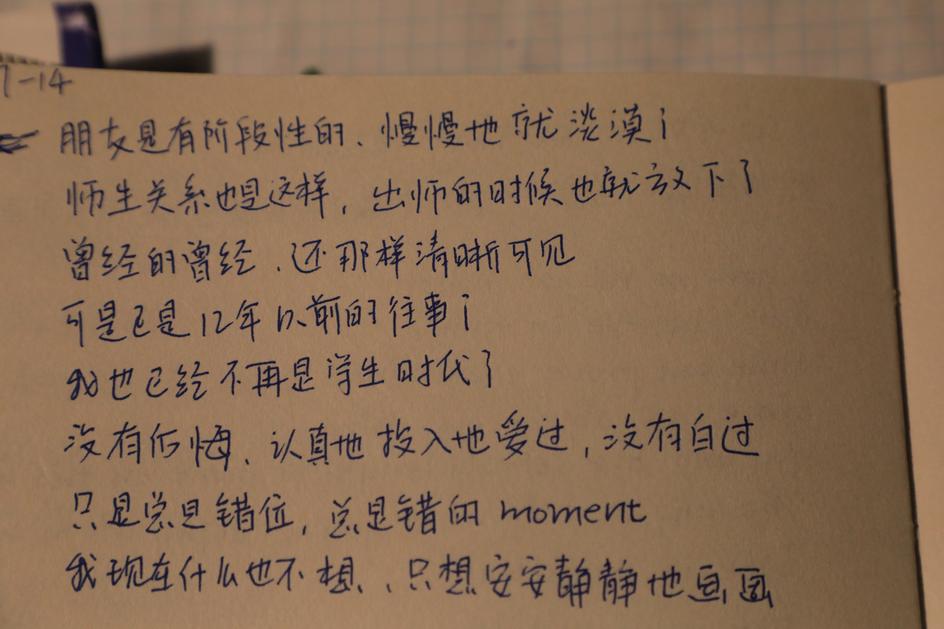 7-14
朋友是有阶段性的、慢慢地就淡漠了
师生关系也是这样，出师的时候也就放下了
曾经的曾经、还那样清晰可见
可是已是12年以前的往事了
我也已经不再是学生时代了
没有后悔、认真地投入地爱过，没有白过
只是总是错位，总是错的moment
我现在什么也不想、只想安安静静地画画